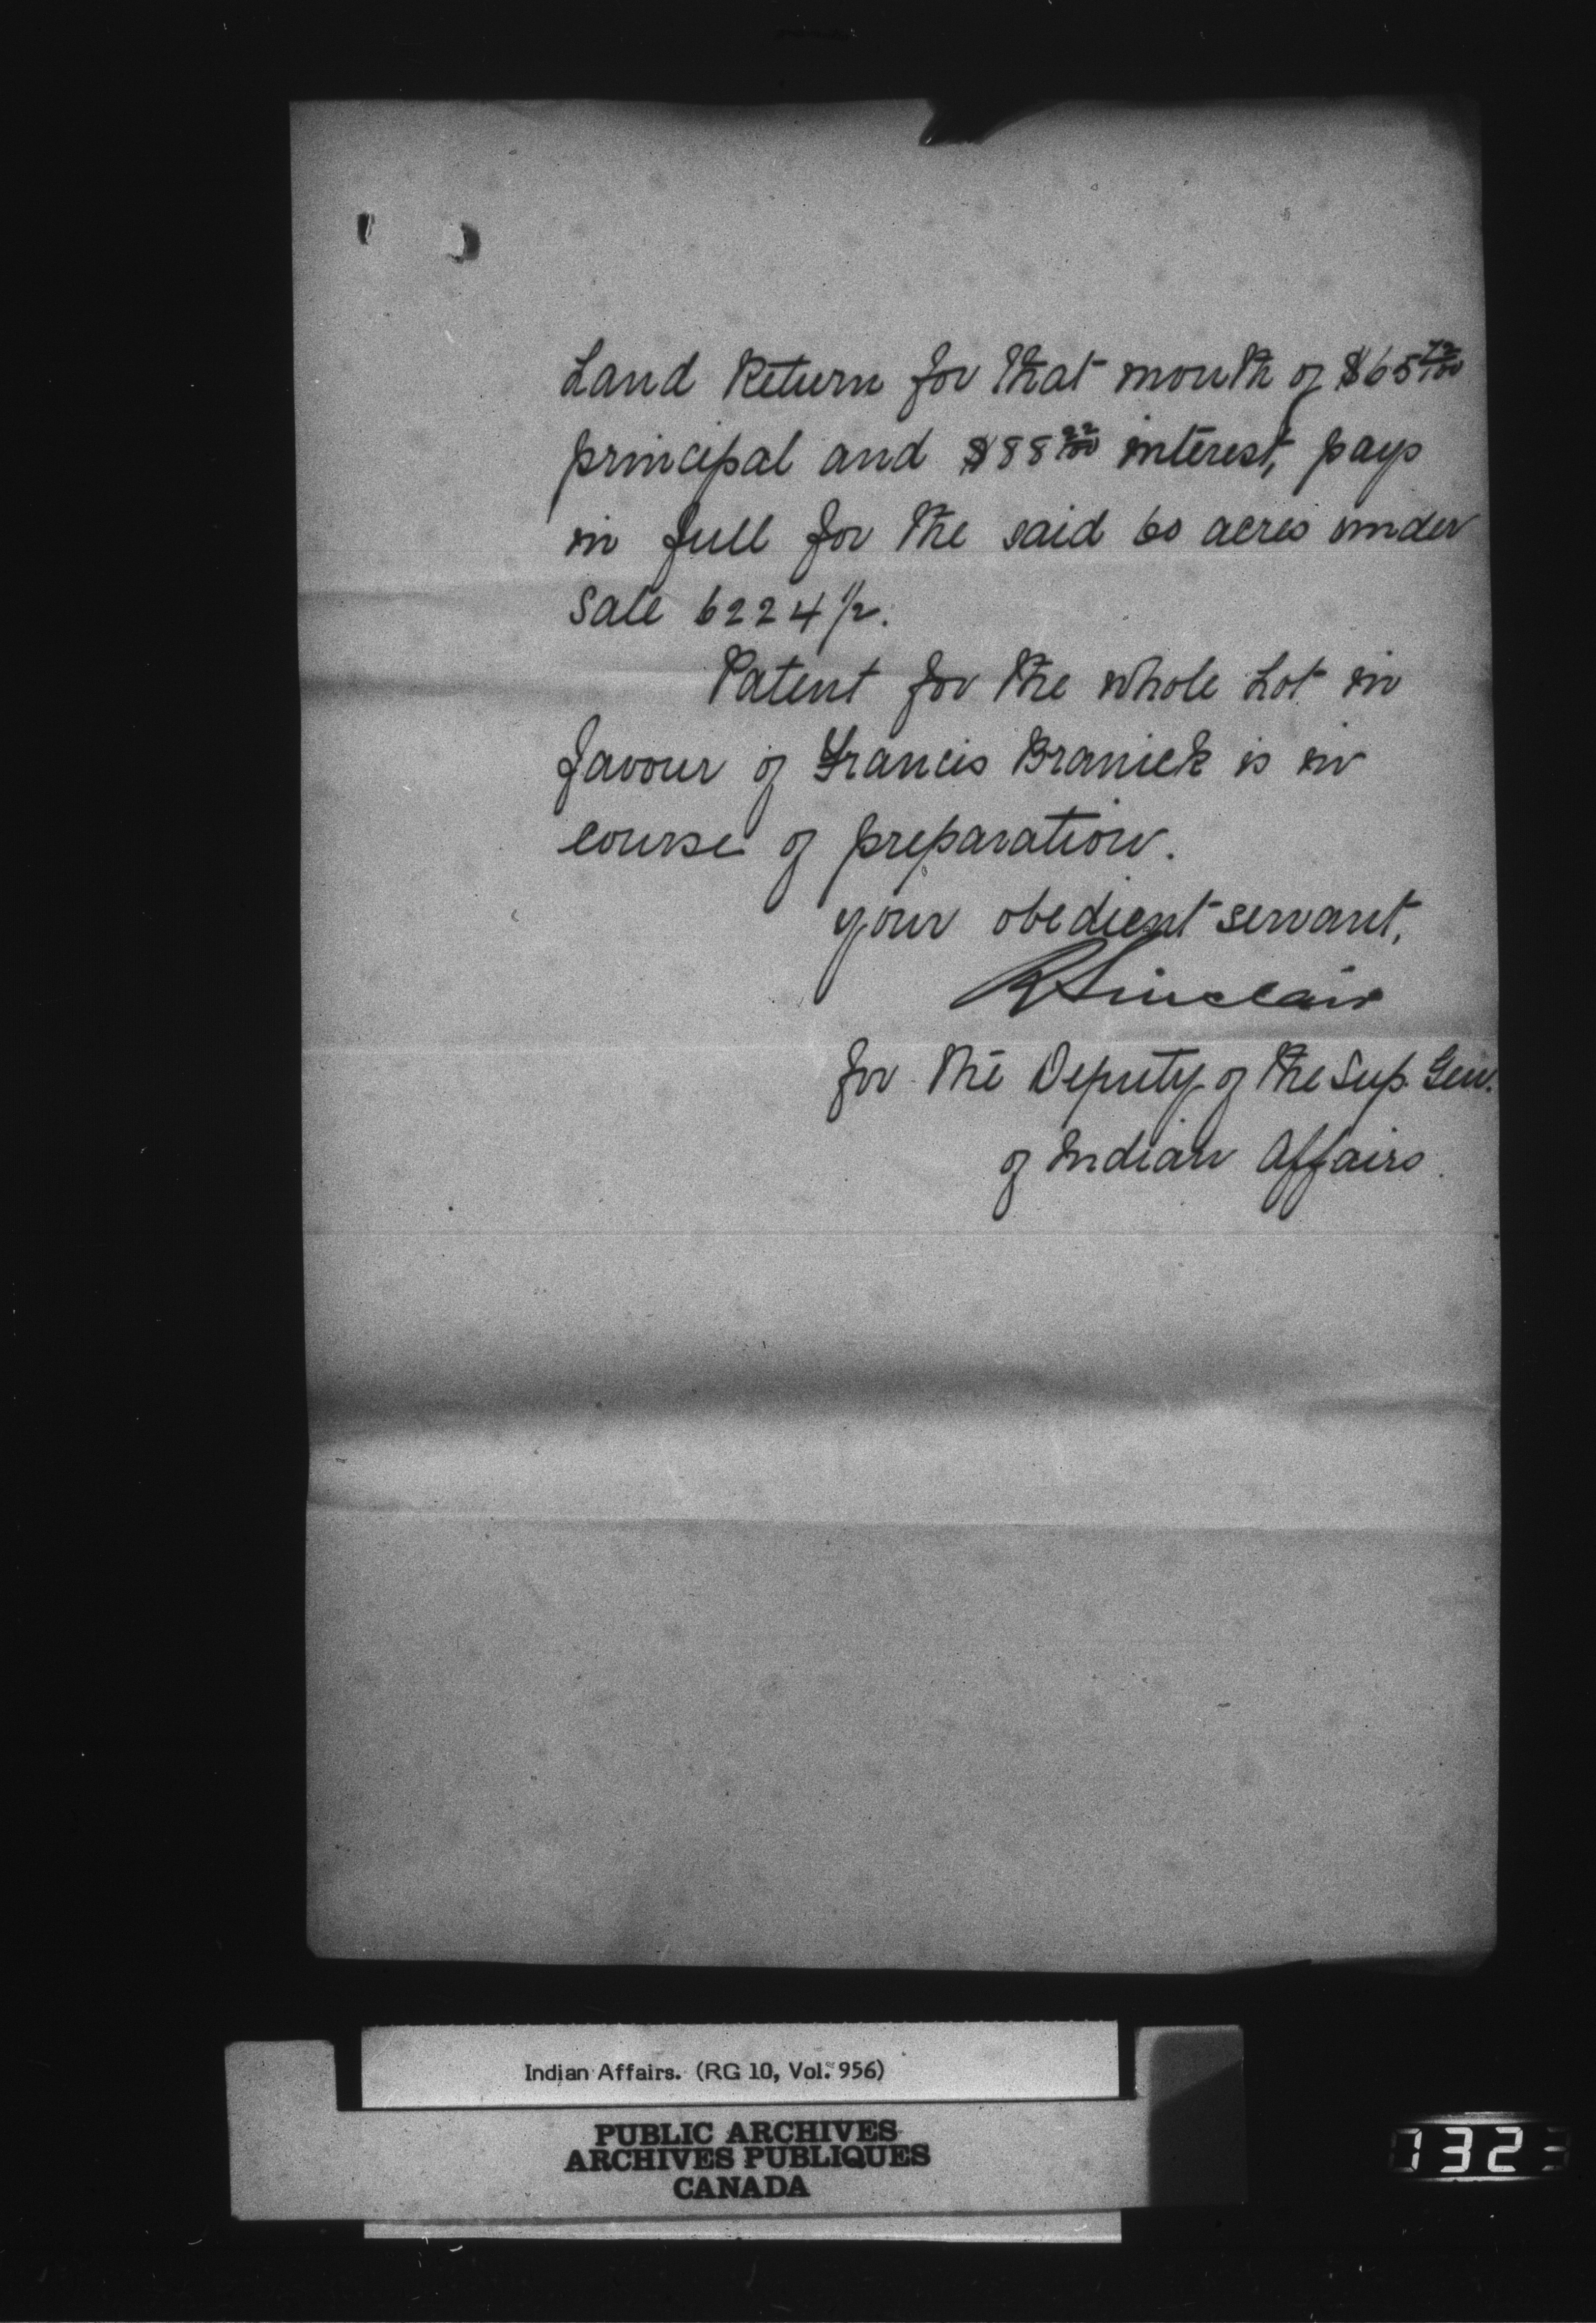 Land Return for that month of $65 72/100
principal and $88 22/100 interest, pays
in full for the said 60 acres under
Sale 6224 1/2.
Patent for the whole Lot in
favour of Francis Branick is in
course of preparation.
your obedient servant,
R Sinclair
for the Deputy of the Sup. Gen.
of Indian Affairs.
Indian Affairs. (RG 10, Vol. 956)
PUBLIC ARCHIVES
ARCHIVES PUBLIQUES
CANADA
1323